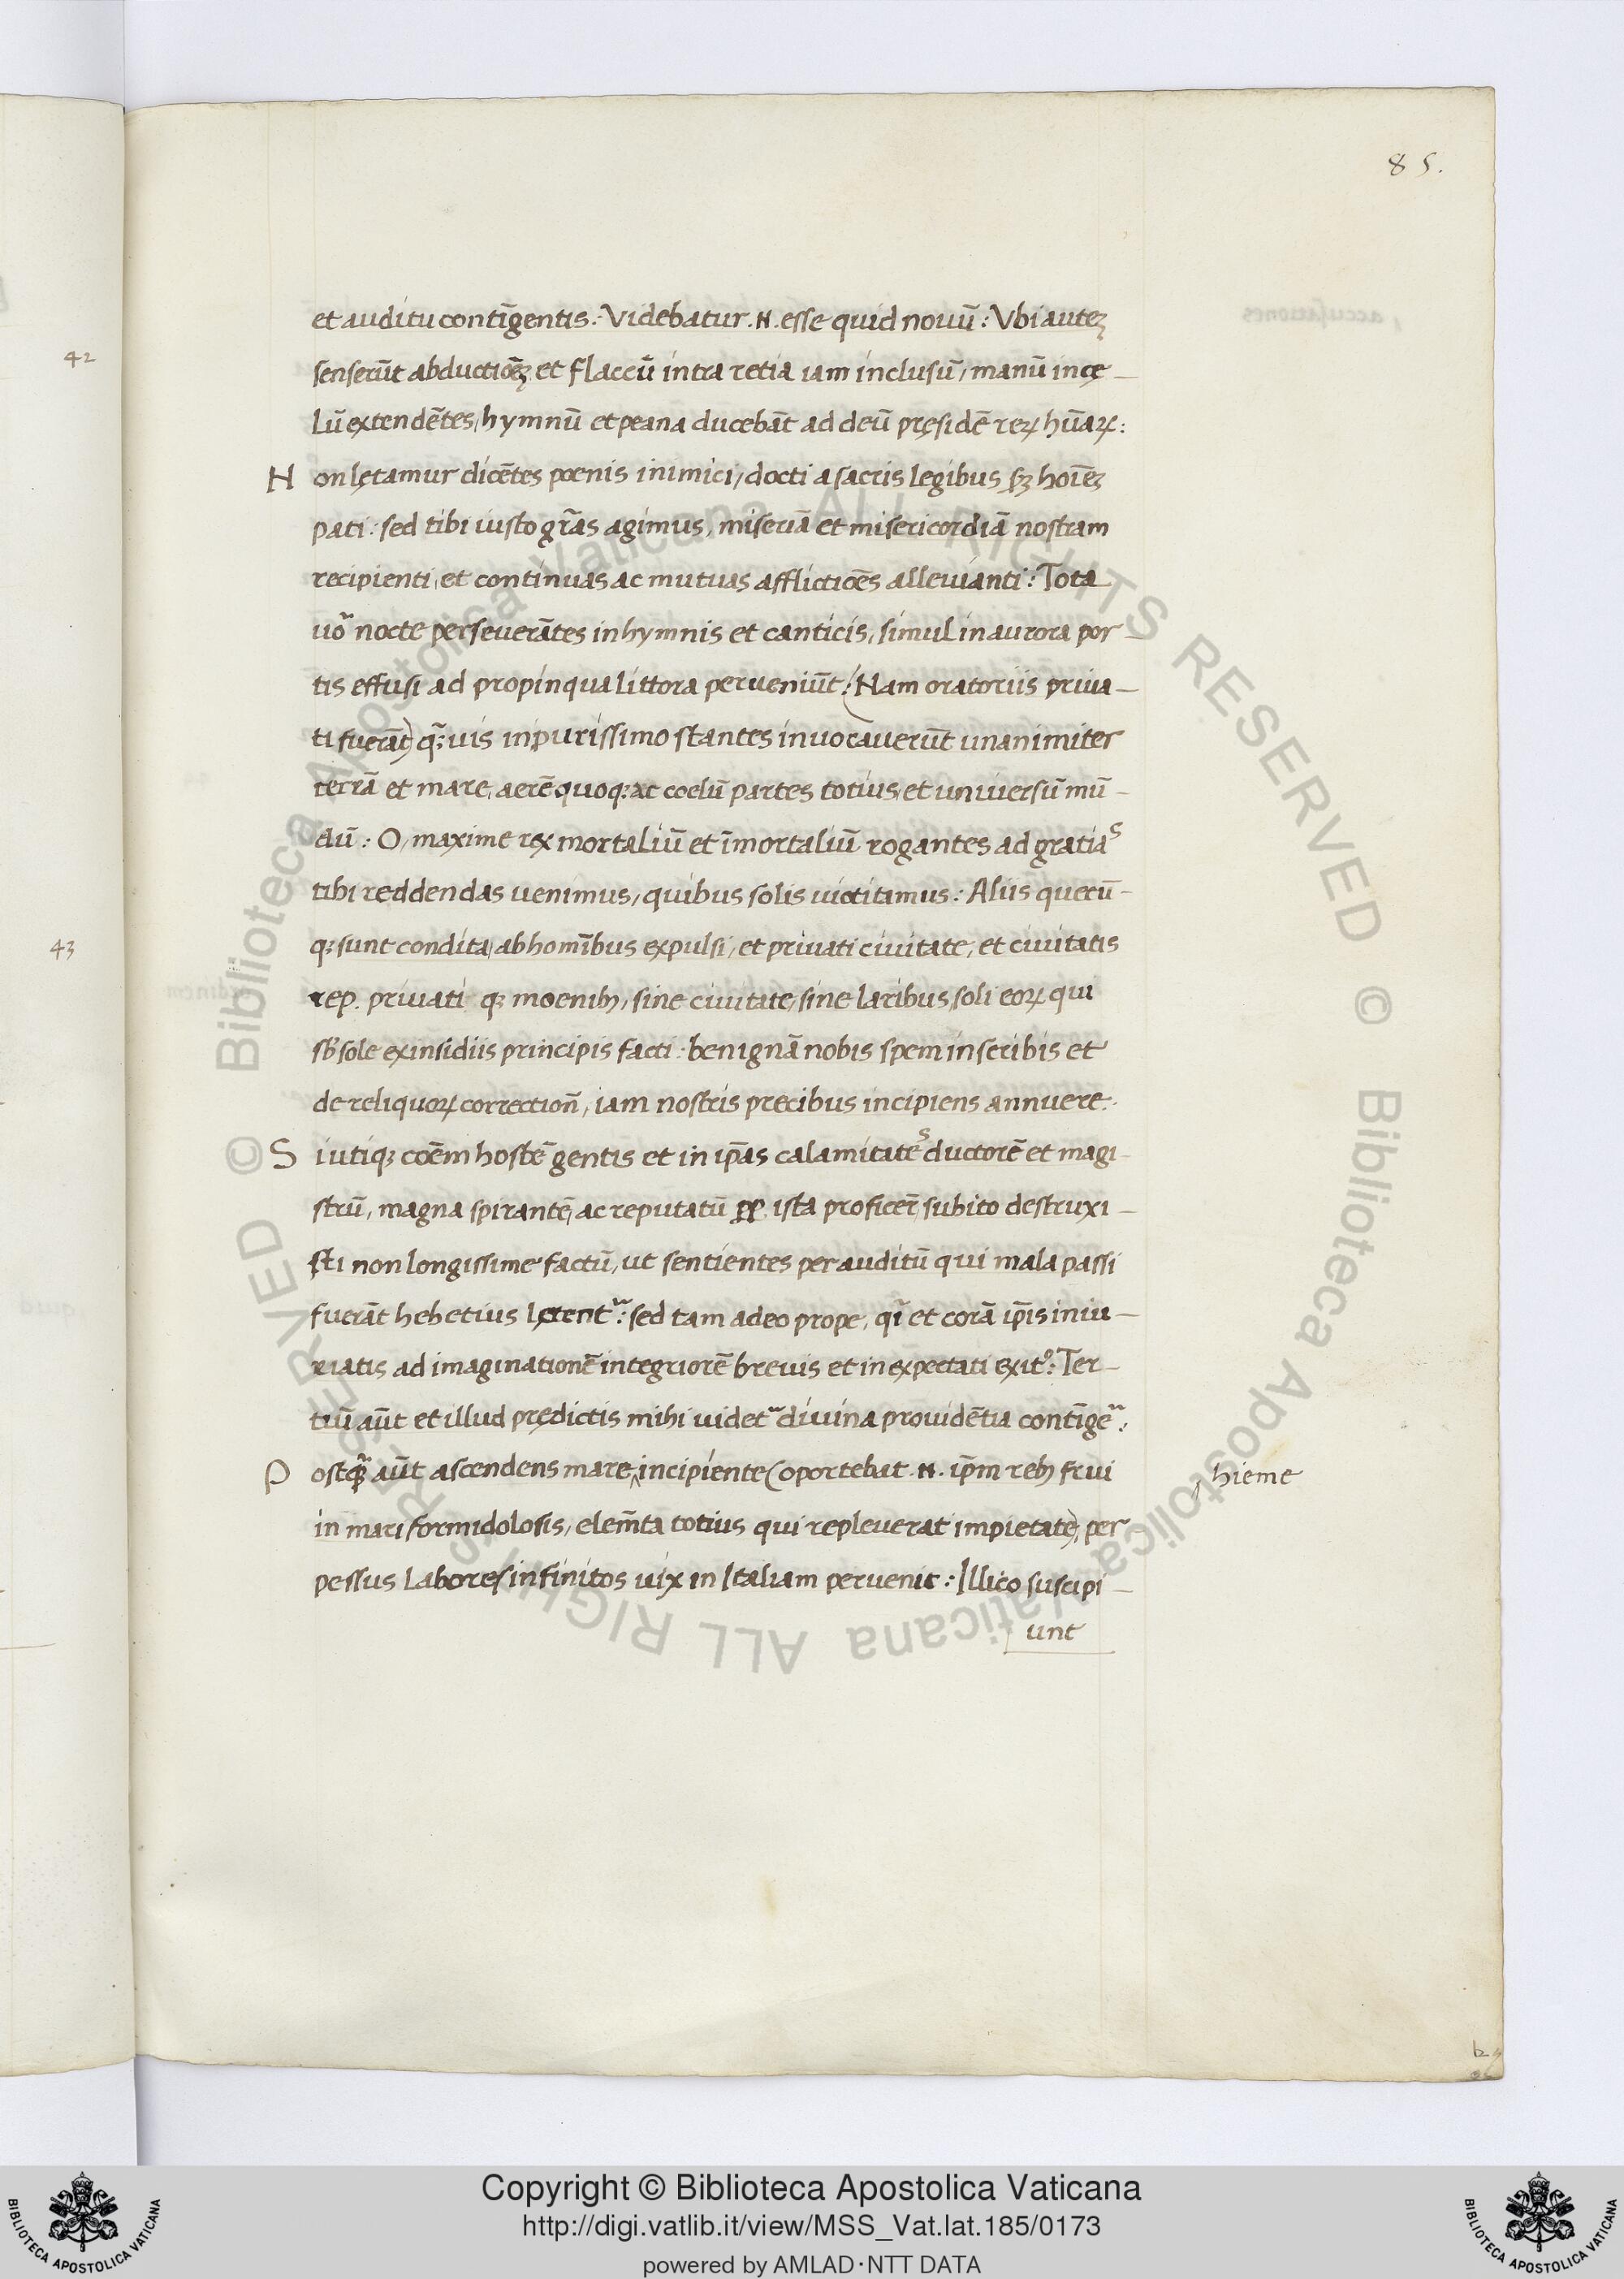 85.
et auditu contĩgentis: Videbatur .N. esse quid nouũ: Vbi autez
senserũt abductiõez et flaccũ intra retia iam inclusũ, manũ in cę
lũ extendẽtes, hymnũ et peana ducebãt ad deũ pręsidẽ rerꝝ hũarꝝ:
Non lętamur dicẽtes poenis inimici, docti a sacris legibus sꝫ hoĩez
pati: sed tibi iusto gr̃as agimus, miseriã et misericordiã nostram
recipienti, et continuas ac mutuas afflictiões alleuianti: Tota
uõ nocte perseuerãtes in hymnis et canticis, simul in aurora por
tis effusi ad propinqua littora perueniũt: (Nam oratoriis priua
ti fuerãt) q̃uis in purissimo stantes inuocauerũt unanimiter
terrã et mare, aerẽ quoqꝫ ac coelũ partes totius et uniuersũ mũ
dũ: O, maxime rex mortaliũ et ĩmortaliũ rogantes ad gratias
tibi reddendas uenimus, quibus solis uictitamus: Aliis quecũ
qꝫ sunt condita ab homĩbus expulsi, et priuati ciuitate, et ciuitatis
rep. priuati qꝫ moenibꝫ, sine ciuitate, sine laribus, soli eorꝝ qui
sb̃ sole ex insidiis principis facti: benignã nobis spem inscribis et
de reliquorꝝ correctioñ, iam nostris precibus incipiens annuere:
Siutiqꝫ coẽm hostẽ gentis et in ip̃as calamitatẽs ductorẽ et magi
strũ, magna spirantẽ, ac reputatũ ꝓp ista proficer̃, subito destruxi
sti non longissime factũ, ut sentientes per auditũ qui mala passi
fuerãt hebetius lętent᷑: sed tam adeo prope, q̃ et corã ip̃is iniu
riatis ad imaginationẽ integriorẽ breuis et inexpectati exitꝰ: Ter
tiũ aũt et illud prędictis mihi uidet᷑ diuina prouidẽtia contĩge᷑:
Postq̃ aũt ascendens mare, incipiente (oportebat .N. ip̃m rebꝫ frui
hieme
in mari formidolosis, elem̃ta totius qui repleuerat impietate) per
pessus labores infinitos uix in Italiam peruenit: Illico suscipi
unt
42
43
Copyright © Biblioteca Apostolica Vaticana
http://digi.vatlib.it/view/MSS_Vat.lat.185/0173
powered by AMLAD·NTT DATA
BIBLIOTECA APOSTOLICA VATICANA
BIBLIOTECA APOSTOLICA VATICANA
© Biblioteca Apostolica Vaticana ALL RIGHTS RESERVED
© Biblioteca Apostolica Vaticana ALL RIGHTS RESERVED